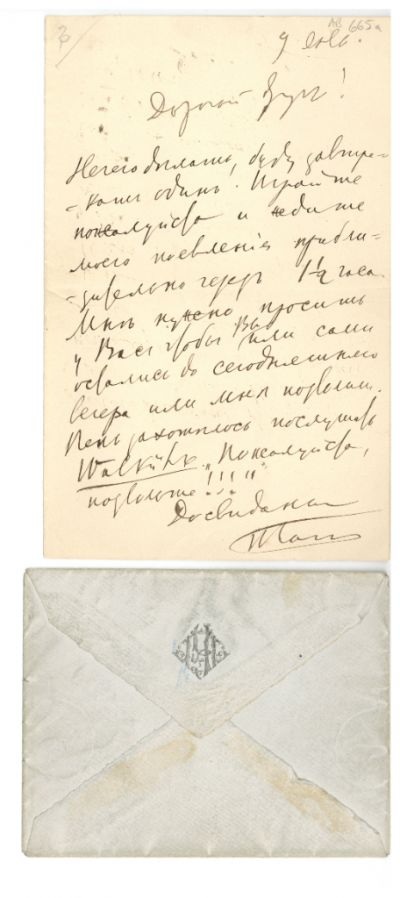 АВ 665а
9 янв.
Дорогой другъ!
Нечего делать, буду завтра-
-кать одинъ. Играйте
пожалуйста и ждите
моего появленія прибли-
-зительно черезъ 1½ часа.
Мнѣ нужно просить
у Васъ чтобы Вы или сами
остались до сегодняшняго
вечера или мнѣ позволили.
захотелось послушать
Walküre. Пожалуйста,
позвольте!!!"
Досвиданія